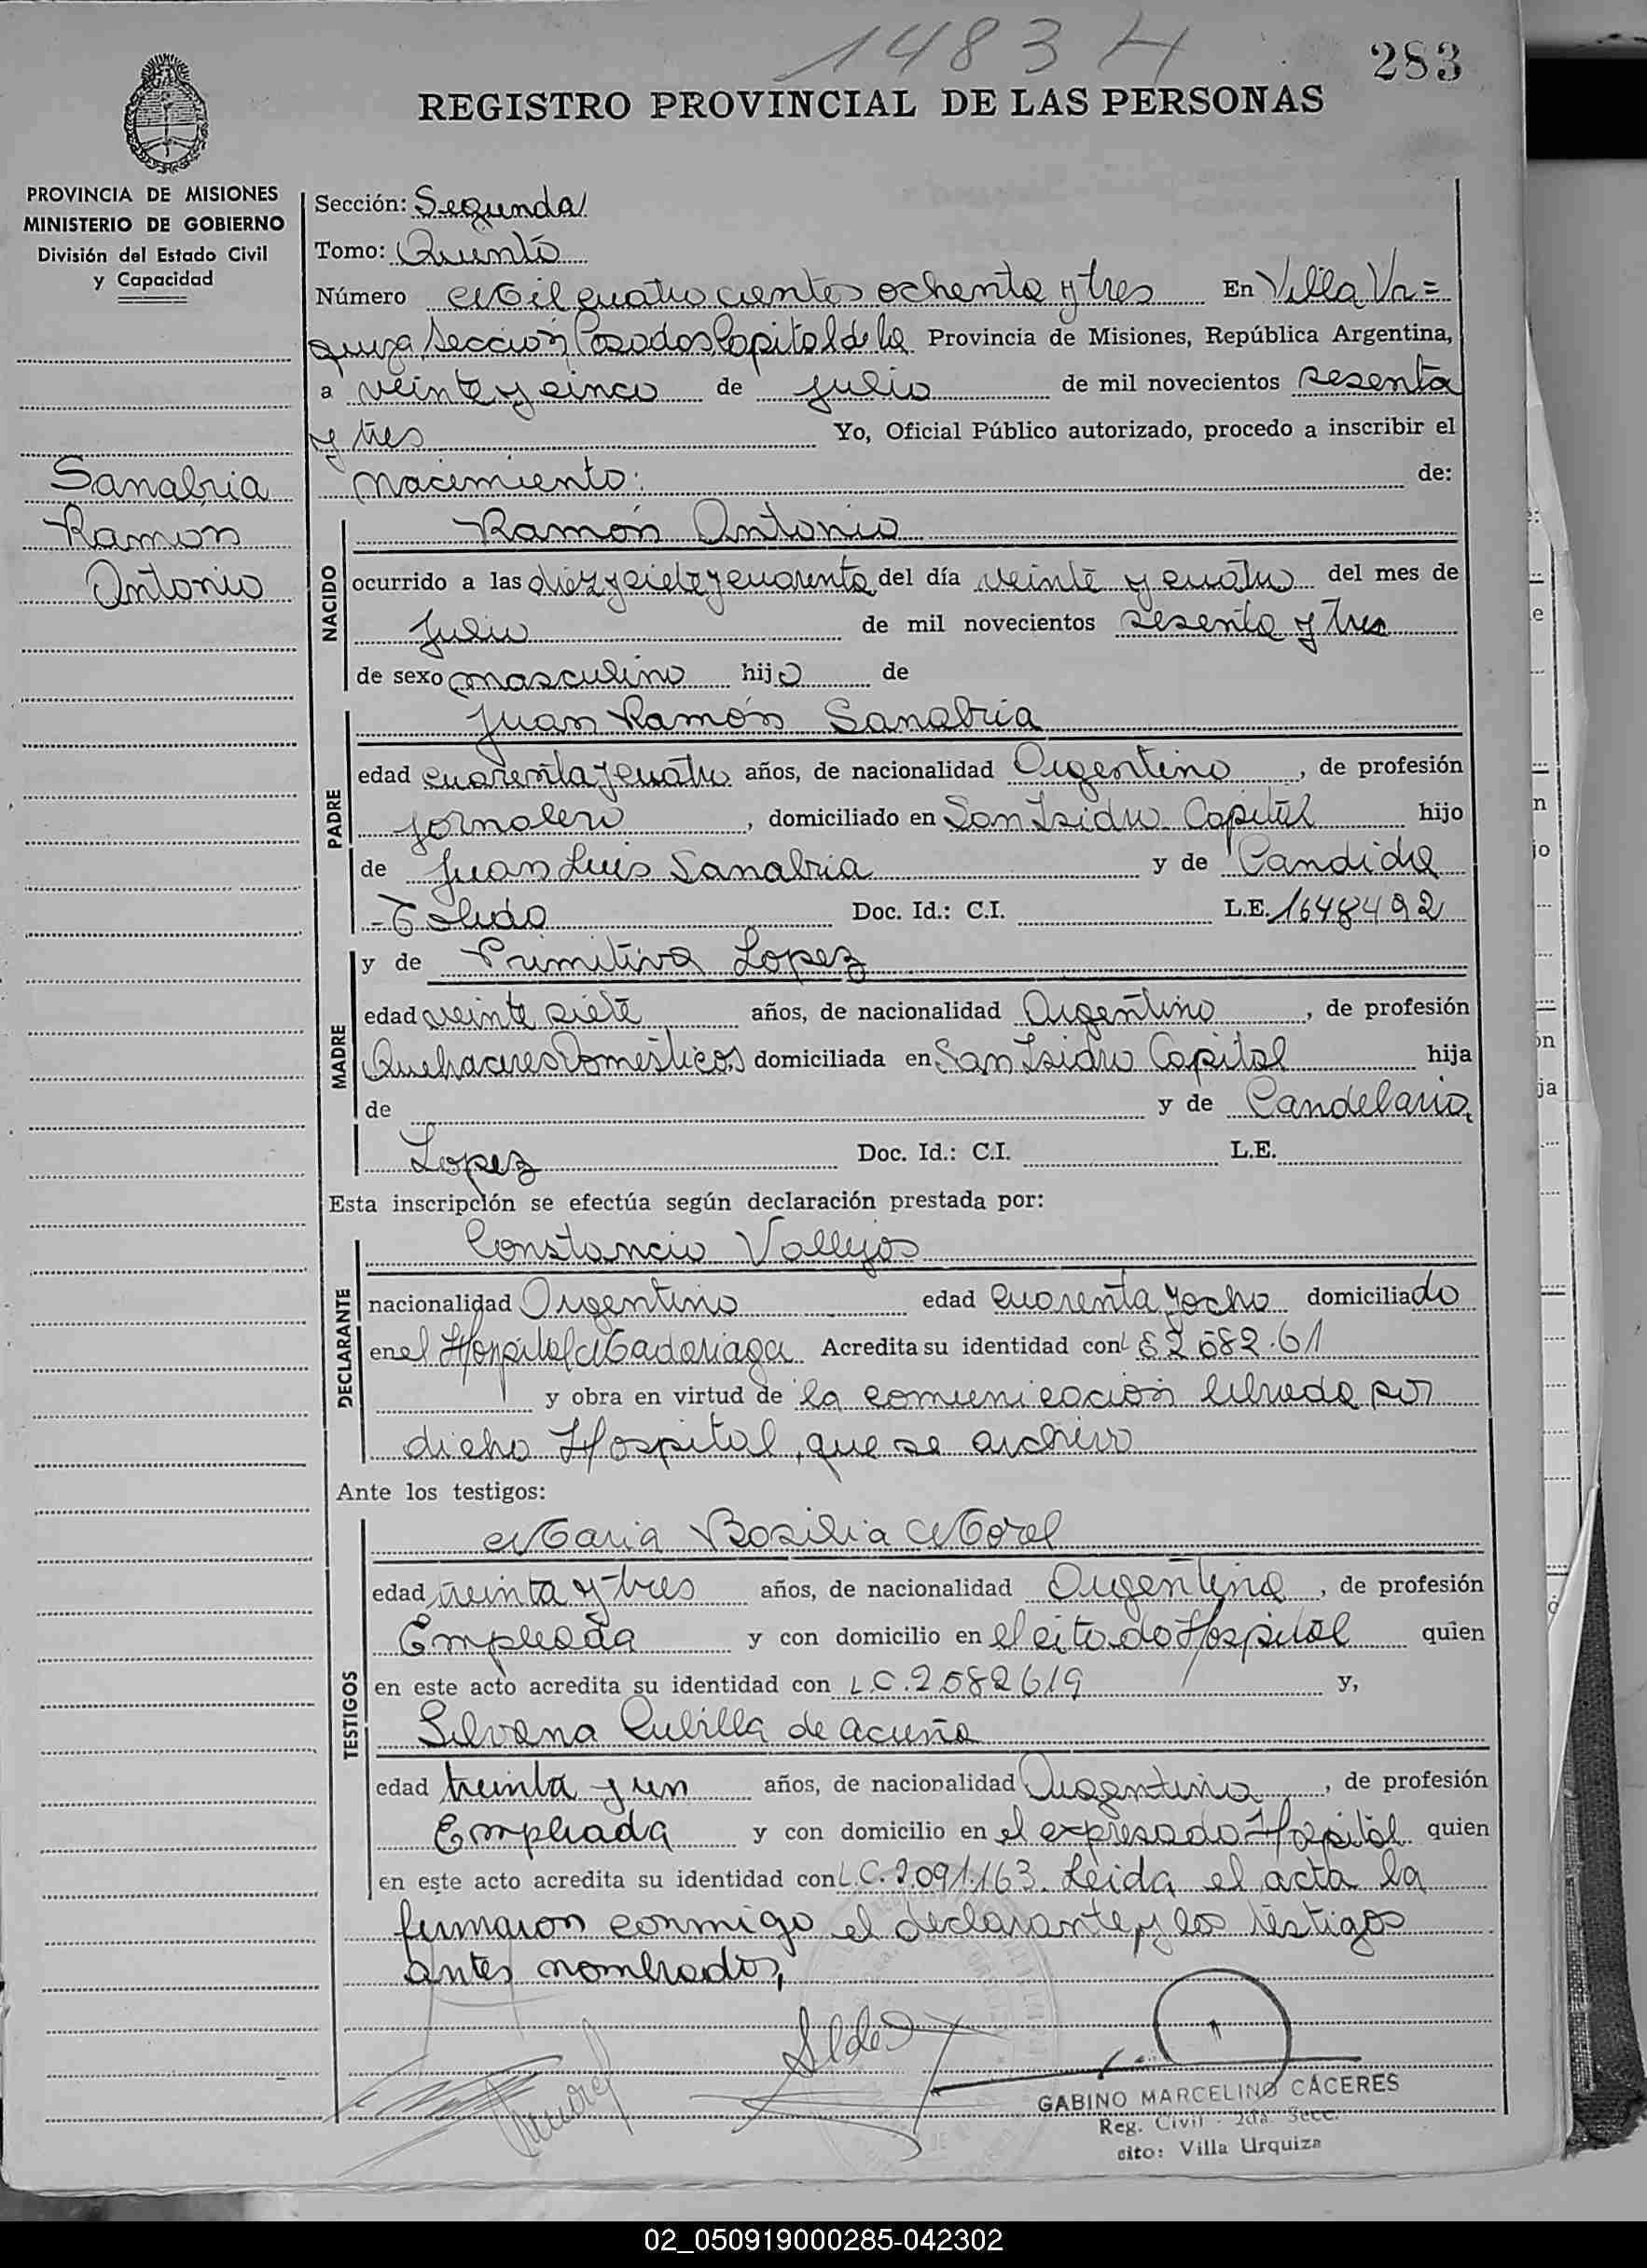 1483 H
283
REGISTRO PROVINCIAL DE LAS PERSONAS
PROVINCIA DE MISIONES
MINISTERIO DE GOBIERNO
División del Estado Civil
y Capacidad
Sanabria
Ramon
Antonio
Sección: Segunda
Tomo: Quinto
Número Mil cuatro cientos ochenta y tres En Villa Ur=
quiza, Sección Posadas Capital de la Provincia de Misiones, República Argentina,
a veinte y cinco de julio de mil novecientos sesenta
y tres Yo, Oficial Público autorizado, procedo a inscribir el
nacimiento: de:
NACIDO
Ramón Antonio
ocurrido a las diez y siete y cuarenta del día veinte y cuatro del mes de
Julio de mil novecientos sesenta y tres
de sexo masculino hijo de
PADRE
Juan Ramón Sanabria
edad cuarenta y cuatro años, de nacionalidad Argentino, de profesión
jornalero, domiciliado en San Isidro Capital hijo
de Juan Luis Sanabria y de Candida
Toledo Doc. Id.: C.I. L.E. 1648492
MADRE
y de Primitiva Lopez
edad veinte siete años, de nacionalidad Argentina, de profesión
Quehaceres Domésticos, domiciliada en San Isidro Capital hija
de y de Candelaria
Lopez Doc. Id.: C.I. L.E.
Esta inscripción se efectúa según declaración prestada por:
DECLARANTE
Constancio Vallejos
nacionalidad Argentino edad cuarenta y ocho domiciliado
en el Hospital Madariaga Acredita su identidad con
y obra en virtud de la comunicación librada por
dicho Hospital, que se archivo
Ante los testigos:
TESTIGOS
Maria Basilia Morel
edad treinta y tres años, de nacionalidad Argentina, de profesión
Empleada y con domicilio en el citado Hospital quien
en este acto acredita su identidad con L.C. 2.582619 y,
Silvana Cubilla de Acuña
edad treinta y un años, de nacionalidad Argentina, de profesión
Empleada y con domicilio en el expresado Hospital quien
en este acto acredita su identidad con L.C. 2.091.163. Leida el acta la
firmaron conmigo el declarante y los testigos
antes nombrados,
GABINO MARCELINO CÁCERES
Reg. Civil - 2da. Secc.
sito: Villa Urquiza
02_050919000285-042302